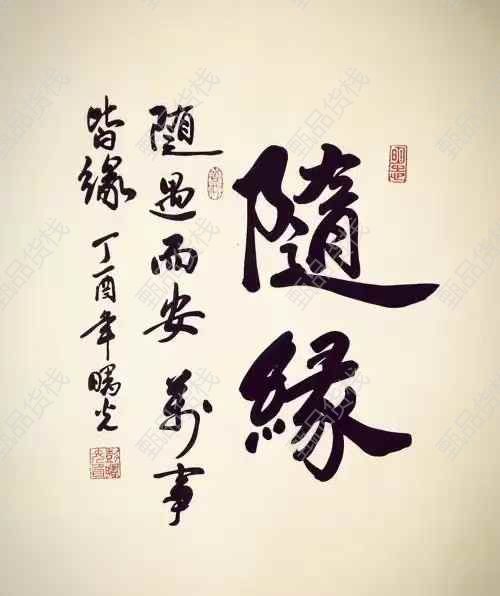 隨緣
隨遇而安 萬事
皆緣 丁酉年 曙光
甄品货栈